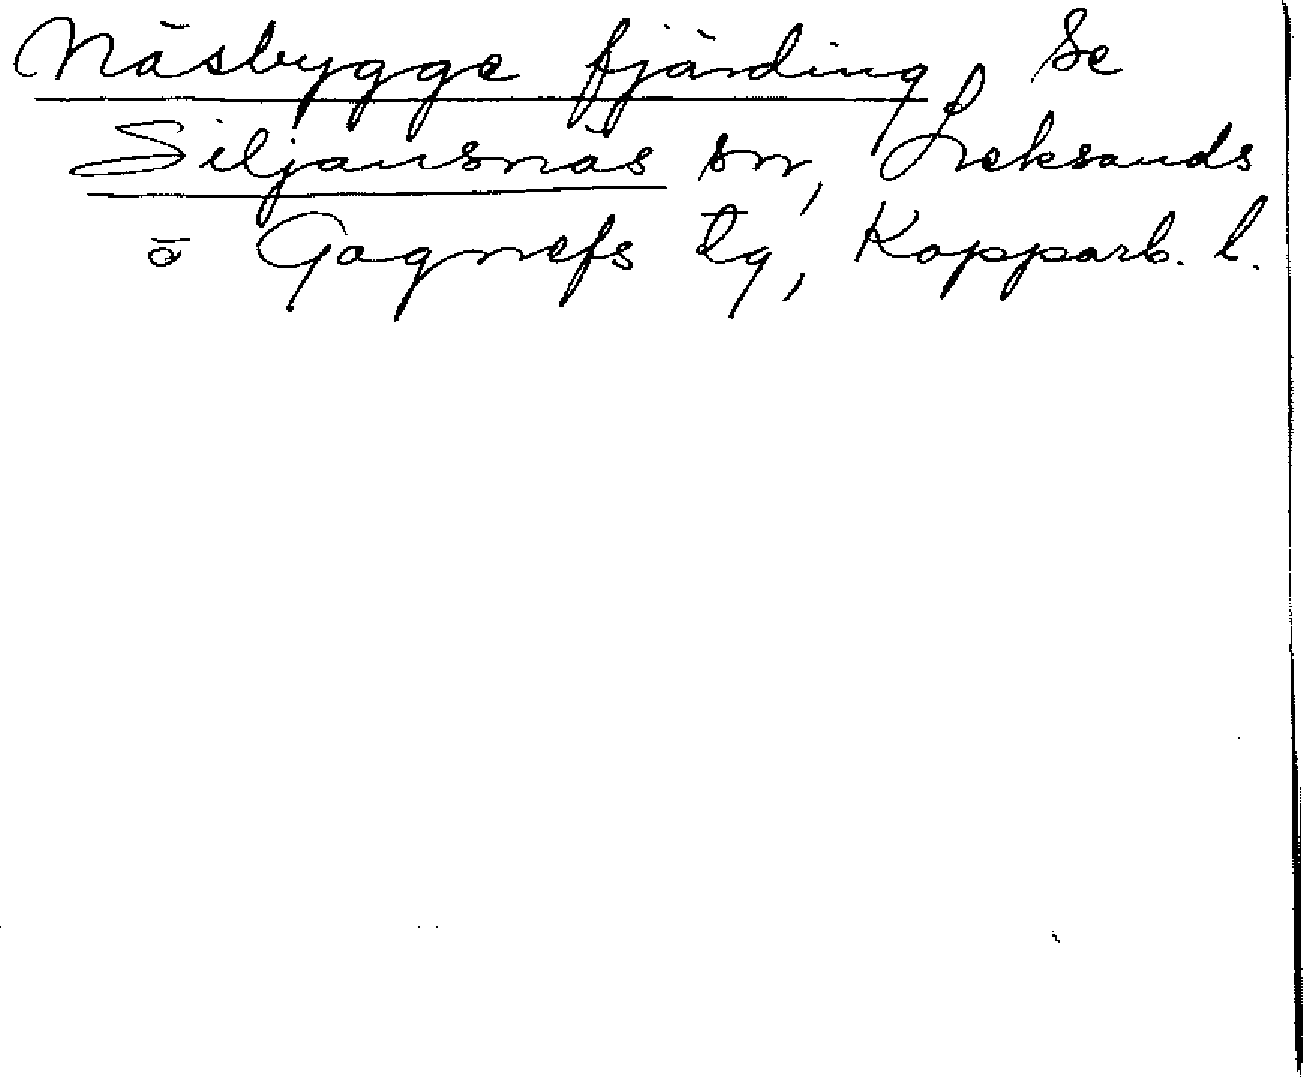 Näsbygge fjärding, Se
Siljansnäs sn, Leksands
o Gagnefs tg, Kopparb. l.